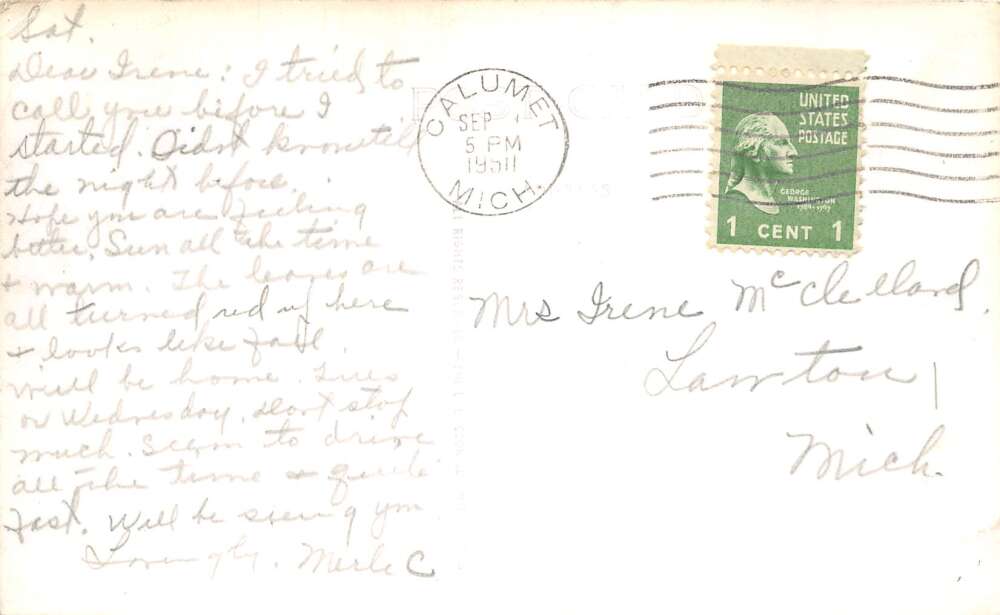 Sat.
Dear Irene: I tried to
call you before I
started. Didnt know till
the night before.
Hope you are feeling
better. Sun all the time
+ warm. The leaves are
all turned red up here
+ looks like fall.
Will be home Tues
or Wednesday. Dont stop
much. Seem to drive
all the time + quite
fast. Will be seeing you
Lovingly. Merle C
CALUMET
SEP
5 PM
MICH.
UNITED
STATES
POSTAGE
GEORGE
WASHINGTON
1789-1797
1 CENT 1
Mrs Irene McClelland,
Lawton,
Mich.